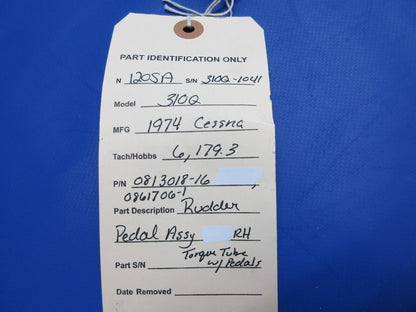 PART IDENTIFICATION ONLY
N 1205A S/N 310Q-1041
Model 310Q
MFG 1974 Cessna
Tach/Hobbs 6,179.3
P/N 0813018-16 ,
0861706-1
Part Description Rudder
Pedal Assy RH
Torque Tube
Part S/N w/ Pedals
Date Removed